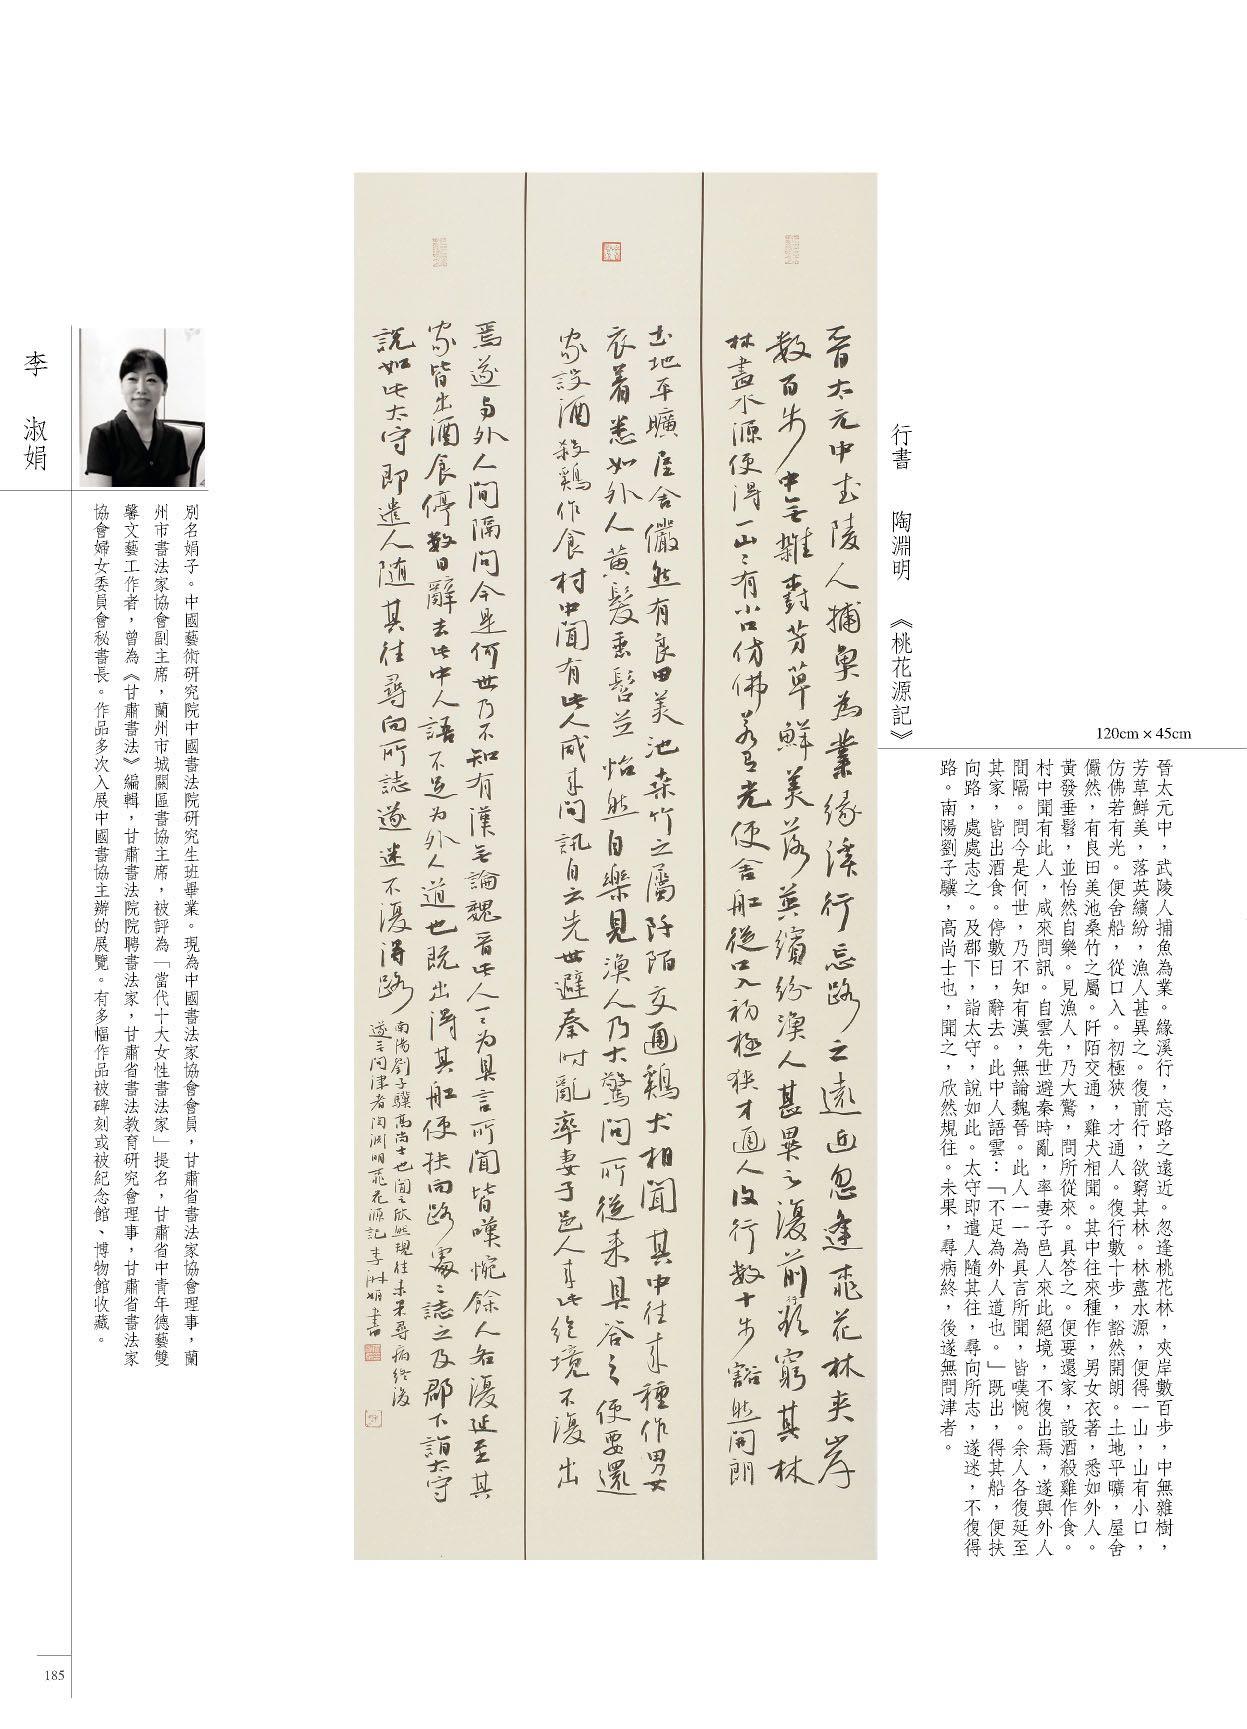 120cm × 45cm
晉太元中，武陵人捕魚為業。緣溪行，忘路之遠近。忽逢桃花林，夾岸數百步，中無雜樹，
芳草鮮美，落英繽紛，漁人甚異之。復前行，欲窮其林。林盡水源，便得一山，山有小口，
仿佛若有光。便舍船，從口入。初極狹，才通人。復行數十步，豁然開朗。土地平曠，屋舍
儼然，有良田美池桑竹之屬。阡陌交通，雞犬相聞。其中往來種作，男女衣著，悉如外人。
黃發垂髫，並怡然自樂。見漁人，乃大驚，問所從來。具答之。便要還家，設酒殺雞作食。
村中聞有此人，咸來問訊。自雲先世避秦時亂，率妻子邑人來此絕境，不復出焉，遂與外人
間隔。問今是何世，乃不知有漢，無論魏晉。此人一一為具言所聞，皆嘆惋。余人各復延至
其家，皆出酒食。停數日，辭去。此中人語雲：「不足為外人道也。」既出，得其船，便扶
向路，處處志之。及郡下，詣太守，說如此。太守即遣人隨其往，尋向所志，遂迷，不復得
路。南陽劉子驥，高尚士也，聞之，欣然規往。未果，尋病終，後遂無問津者。
行書 陶淵明 《桃花源記》
晉太元中武陵人捕魚為業緣溪行忘路之遠近忽逢桃花林夾岸
數百步中無雜樹芳草鮮美落英繽紛漁人甚異之復前行欲窮其林
林盡水源便得一山山有小口仿佛若有光便舍船從口入初極狹才通人復行數十步豁然開朗
土地平曠屋舍儼然有良田美池桑竹之屬阡陌交通鷄犬相聞其中往來種作男女
衣著悉如外人黃髮垂髫並怡然自樂見漁人乃大驚問所從來具答之便要還
家設酒殺鷄作食村中聞有此人咸來問訊自云先世避秦時亂率妻子邑人來此絕境不復出
焉遂與外人間隔問今是何世乃不知有漢無論魏晉此人一一為具言所聞皆嘆惋餘人各復延至其
家皆出酒食停數日辭去此中人語不足為外人道也既出得其船便扶向路處處誌之及郡下詣太守
說如此太守即遣人随其往尋向所誌遂迷不復得路
南陽劉子驥高尚士也聞之欣然規往未果尋病終後
遂無問津者陶渊明桃花源記李淑娟書
李 淑娟
別名娟子。中國藝術研究院中國書法院研究生班畢業。現為中國書法家協會會員，甘肅省書法家協會理事，蘭
州市書法家協會副主席，蘭州市城關區書協主席，被評為「當代十大女性書法家」提名，甘肅省中青年德藝雙
馨文藝工作者，曾為《甘肅書法》編輯，甘肅書法院院聘書法家，甘肅省書法教育研究會理事，甘肅省書法家
協會婦女委員會秘書長。作品多次入展中國書協主辦的展覽。有多幅作品被碑刻或被紀念館、博物館收藏。
185